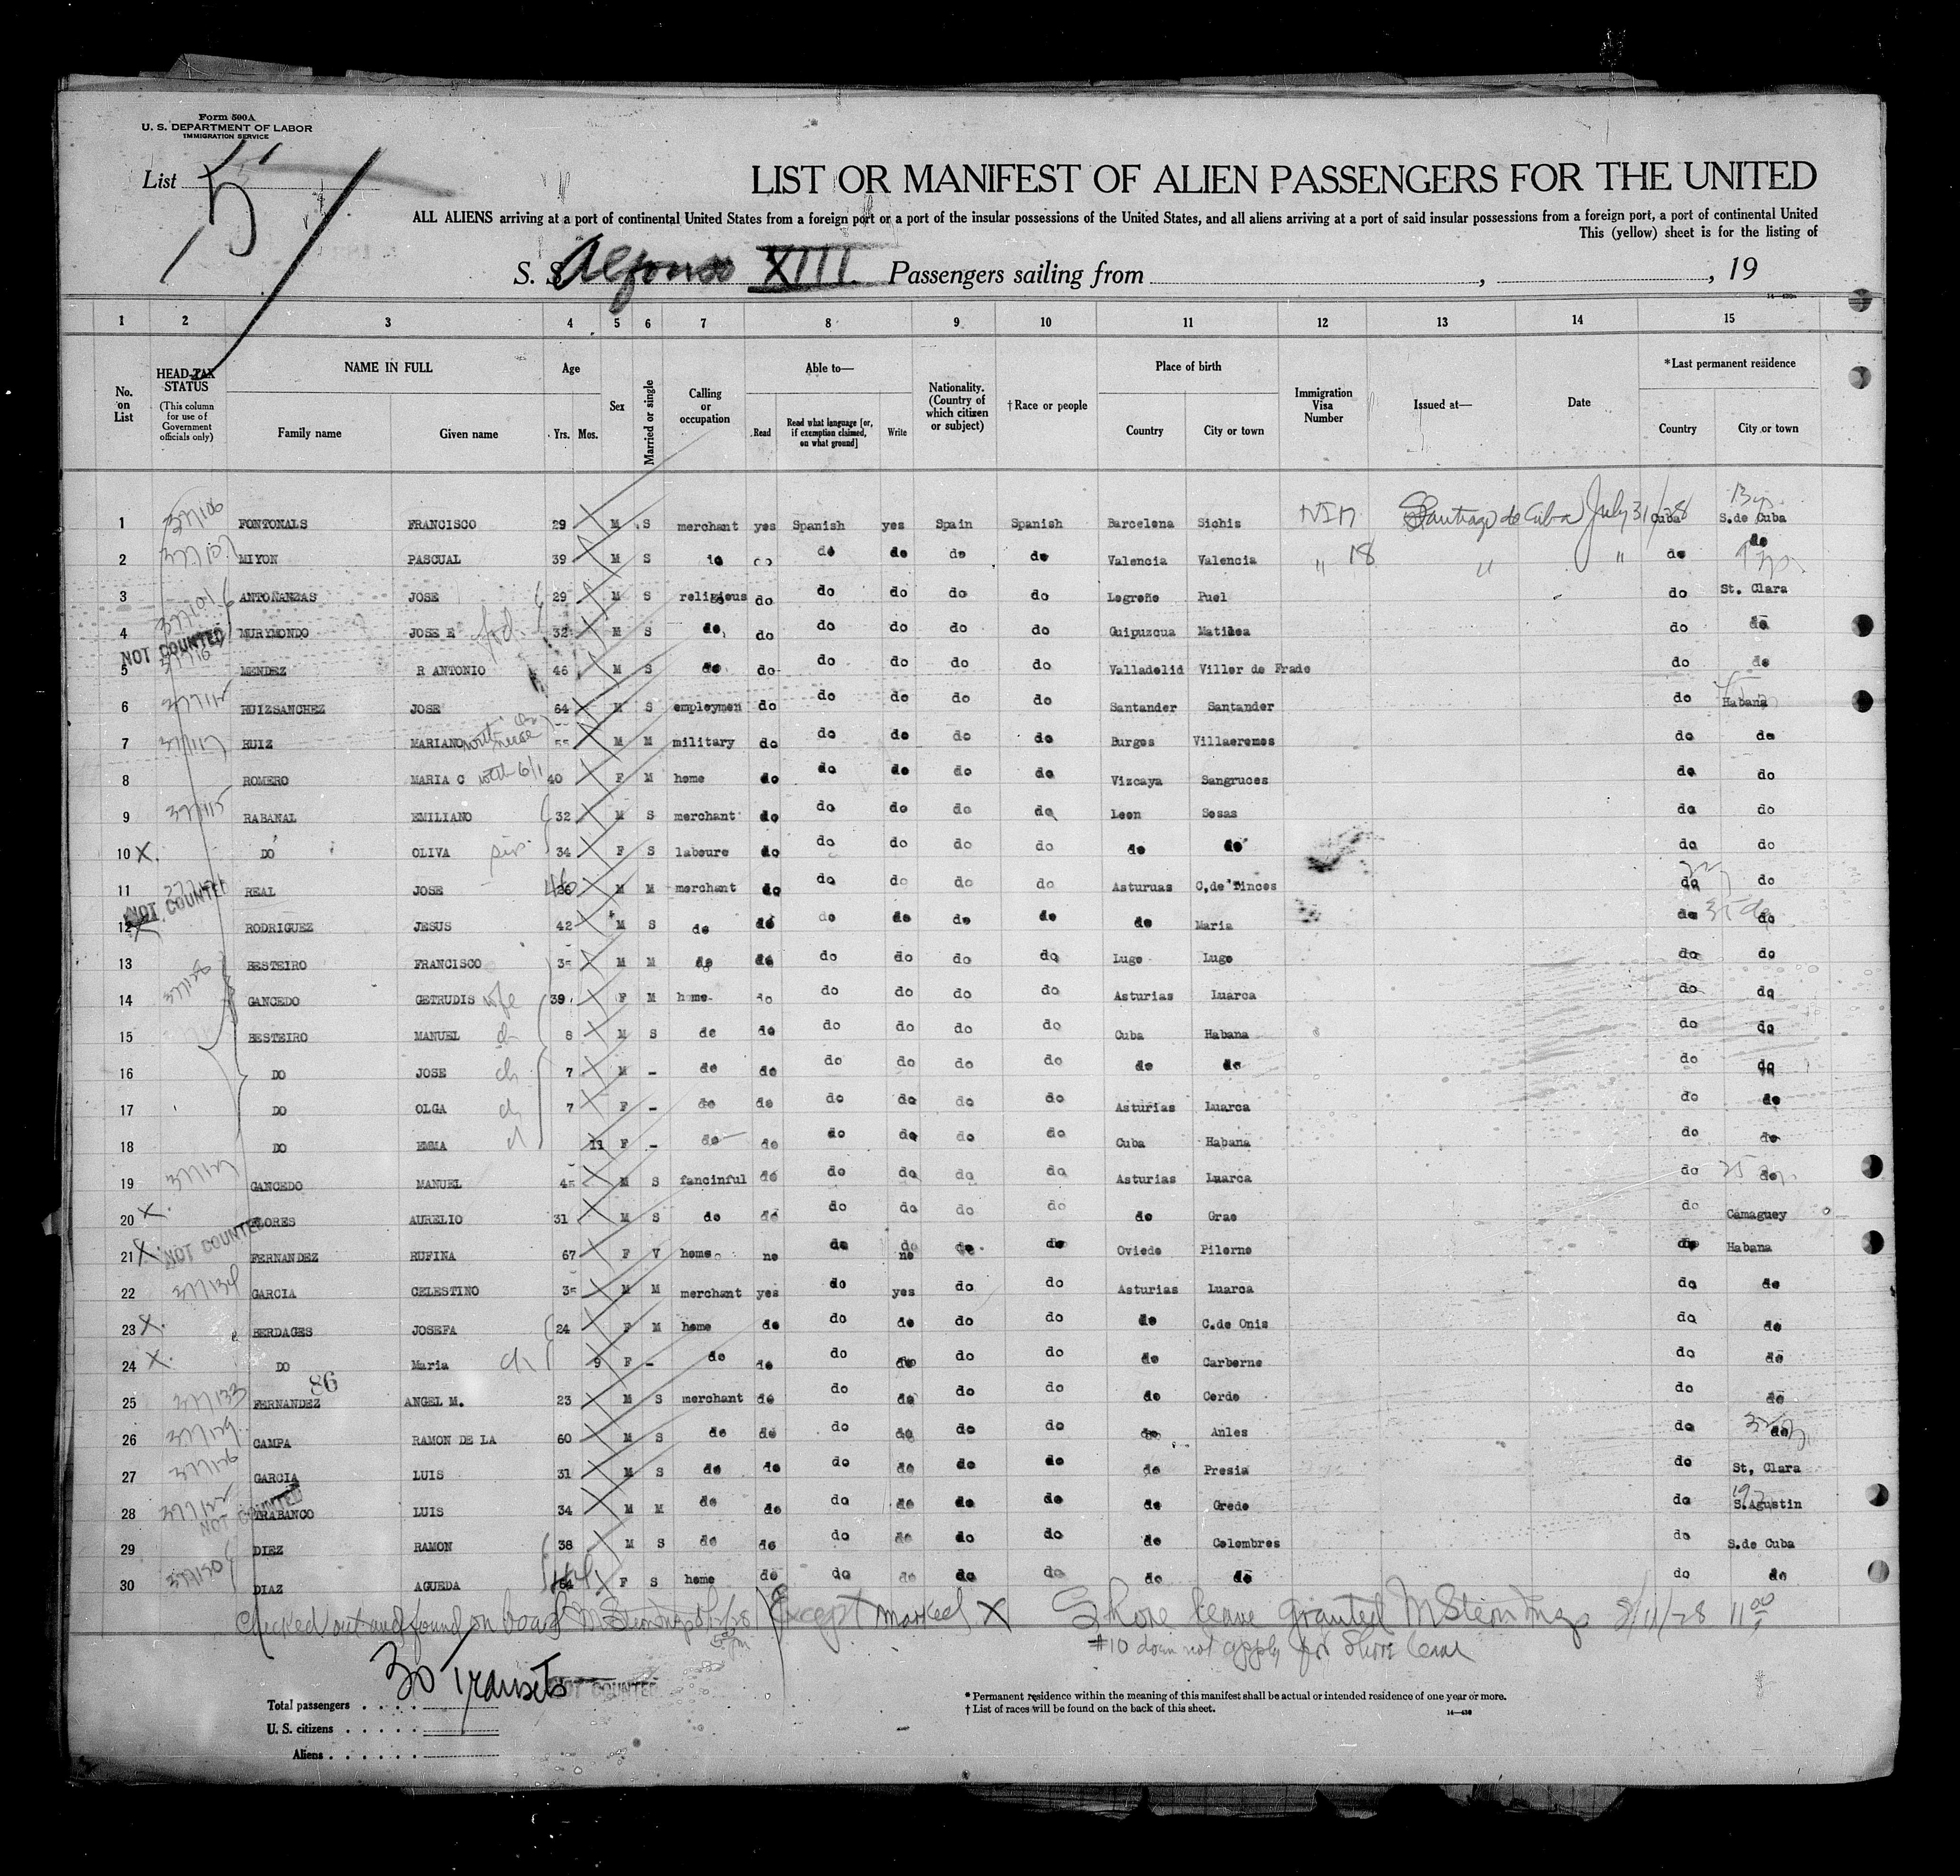 Form 500A
U. S. DEPARTMENT OF LABOR
IMMIGRATION SERVICE
List 5
LIST OR MANIFEST OF ALIEN PASSENGERS FOR THE UNITED
ALL ALIENS arriving at a port of continental United States from a foreign port or a port of the insular possessions of the United States, and all aliens arriving at a port of said insular possessions from a foreign port, a port of continental United
This (yellow) sheet is for the listing of
S. S. Alfonso XIII. Passengers sailing from , , 19
1 2 3 4 5 6 7 8 9 10 11 12 13 14 15
No. on List HEAD-TAX STATUS (This column for use of Government officials only) NAME IN FULL Family name Given name Age Yrs. Mos. Sex Married or single Calling or occupation Able to— Read Read what language [or, if exemption claimed, on what ground] Write Nationality. (Country of which citizen or subject) † Race or people Place of birth Country City or town Immigration Visa Number Issued at— Date *Last permanent residence Country City or town
1 377106 FONTONALS FRANCISCO 29 M S merchant yes Spanish yes Spain Spanish Barcelona Sichis Santiago de Cuba July 31/28 Cuba S.de Cuba
2 377107 MIYON PASCUAL 39 M S do do do do do Valencia Valencia " 18 " " do do
3 ANTOÑANZAS JOSE 29 M S religious do do do do do Logroño Puel do St. Clara
4 NOT COUNTED MURYMONDO JOSE E 32 M S do, do do do do do Guipuzcua Matilea do do
5 MENDEZ R ANTONIO 46 M S do do do do do do Valladolid Viller de Frade do do
6 377112 RUIZSANCHEZ JOSE 64 M S employmen do do do do do Santander Santander do Habana
7 377117 RUIZ MARIANO 55 M M military do do do do do Burgos Villaeremos do do
8 ROMERO MARIA C 40 F M home do do do do do Vizcaya Sangruces do do
9 377115 RABANAL EMILIANO 32 M S merchant do do do do do Leon Sosas do do
10 X. DO OLIVA sis 34 F S laboure do do do do do do do do do
11 REAL JOSE 46 M M merchant do do do do do Asturuas C.de Tinces do do
12 X NOT COUNTED RODRIGUEZ JESUS 42 M S do do do do do do do Maria do do
13 BESTEIRO FRANCISCO 35 M M do do do do do do Lugo Lugo do do
14 GANCEDO GETRUDIS wife 39 F M home do do do do do Asturias Luarca do do
15 BESTEIRO MANUEL ch 8 M S do do do do do do Cuba Habana do do
16 DO JOSE ch 7 M - do do do do do do do do do do
17 DO OLGA ch 7 F - do do do do do do Asturias Luarca do do
18 DO EMMA ch 11 F - do do do do do do Cuba Habana do do
19 377127 GANCEDO MANUEL 45 M S fancinful do do do do do Asturias Luarca do do
20 X. FLORES AURELIO 31 M S do do do do do do do Grao do Camaguey
21 X NOT COUNTED FERNANDEZ RUFINA 67 F V home no do no do do Oviedo Pilorno do Habana
22 GARCIA CELESTINO 35 M M merchant yes do yes do do Asturias Luarca do do
23 X. BERDAGES JOSEFA 24 F M home do do do do do do C.de Onis do do
24 X. DO Maria ch 9 F - do do do do do do do Carborne do do
86
25 377133 FERNANDEZ ANGEL M. 23 M S merchant do do do do do do Cerdo do do
26 377129 CAMPA RAMON DE LA 60 M S do do do do do do do Anles do do
27 377126 GARCIA LUIS 31 M S do do do do do do do Presia do St, Clara
28 377122 NOT COUNTED TRABANCO LUIS 34 M M do do do do do do do Gredo do S.Agustin
29 DIEZ RAMON 38 M S do do do do do do do Colombres do S.de Cuba
30 377130 DIAZ AGUEDA F S home do do do do do do do do do
Checked out and found on board Except marked X Shore leave granted 8/11/28 11 00
#10 does not apply for Shore leave
30 Transits NOT COUNTED
Total passengers
U. S. citizens
Aliens
* Permanent residence within the meaning of this manifest shall be actual or intended residence of one year or more.
† List of races will be found on the back of this sheet.